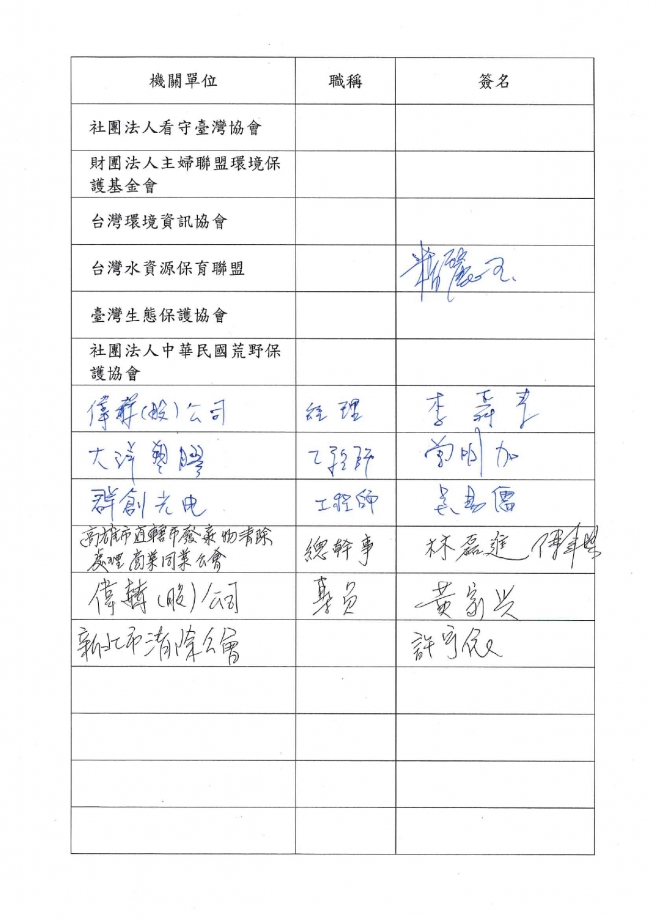 機關單位 職稱 簽名
社團法人看守臺灣協會
財團法人主婦聯盟環境保
護基金會
台灣環境資訊協會
台灣水資源保育聯盟
臺灣生態保護協會
社團法人中華民國荒野保
護協會
偉轉(股)公司 經理 李
大洋塑膠 工程師 明
群創光电 工程師
高雄市直轄市廢棄物清除
處理商業同業公會 總幹事 林磊進
偉轉(股)公司 專員 黃家兴
新北市清除公會 許守